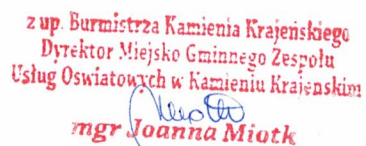 z up. Burmistrza Kamienia Krajeńskiego
Dyrektor Miejsko Gminnego Zespołu
Usług Oswiatowych w Kamieniu Krajeńskim
mgr Joanna Miotk